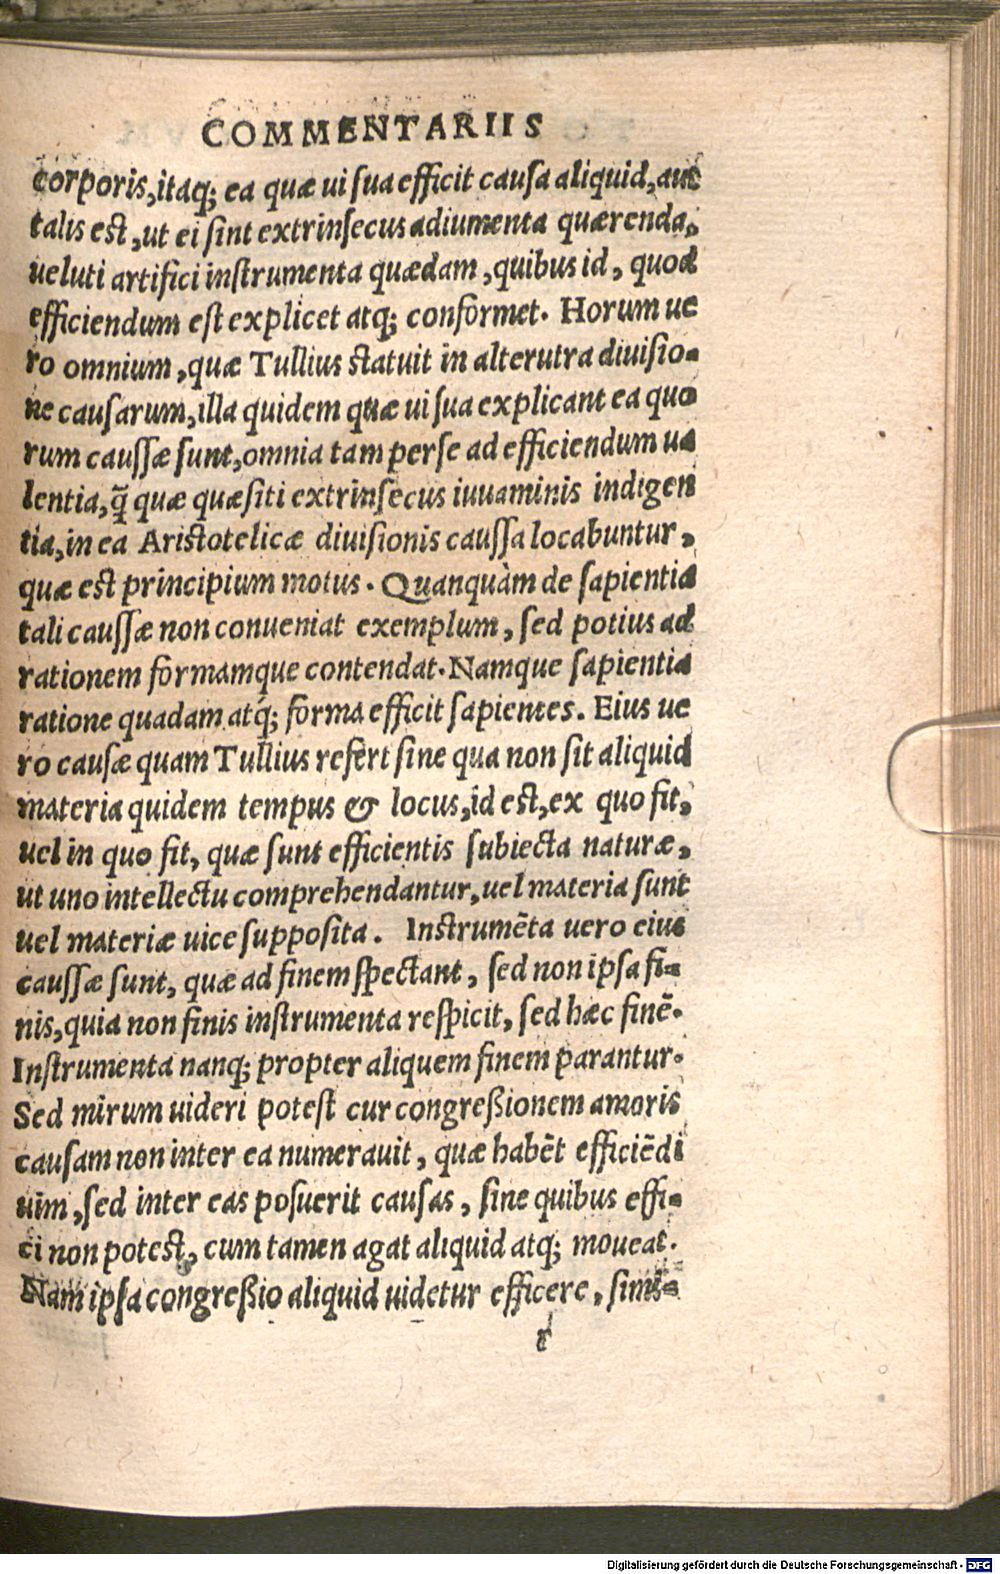 COMMENTARIIS
corporis, itaq; ea quæ ui sua efficit causa aliquid, aut
talis est, ut ei sint extrinsecus adiumenta quærenda,
ueluti artifici instrumenta quædam, quibus id, quod
efficiendum est explicet atq; conformet. Horum ue
ro omnium, quæ Tullius statuit in alterutra diuisio-
ne causarum, illa quidem quæ ui sua explicant ea quo
rum caussæ sunt, omnia tam perse ad efficiendum ua
lentia, q̃ quæ quæsiti extrinsecus iuuaminis indigen
tia, in ea Aristotelicæ diuisionis caussa locabuntur,
quæ est principium motus. Quanquàm de sapientia
tali caussæ non conueniat exemplum, sed potius ad
rationem formamque contendat. Namque sapientia
ratione quadam atq́; forma efficit sapientes. Eius ue
ro causæ quam Tullius refert sine qua non sit aliquid
materia quidem tempus & locus, id est, ex quo fit,
uel in quo fit, quæ sunt efficientis subiecta naturæ,
ut uno intellectu comprehendantur, uel materia sunt
uel materiæ uice supposita. Instrumẽta uero eius
caussæ sunt, quæ ad finem spectant, sed non ipsa fi-
nis, quia non finis instrumenta respicit, sed hæc finẽ.
Instrumenta nanq; propter aliquem finem parantur.
Sed mirum uideri potest cur congreßionem amoris
causam non inter ea numerauit, quæ habẽt efficiẽdi
uim, sed inter eas posuerit causas, sine quibus effi-
ci non potest, cum tamen agat aliquid atq; moueat.
Nam ipsa congreßio aliquid uidetur efficere, simi-
r
Digitalisierung gefördert durch die Deutsche Forschungsgemeinschaft - DFG